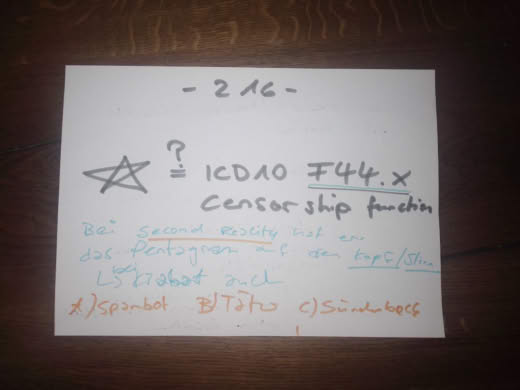 - 216 -
?
= ICD10 F44.x
censorship function
Bei second reality hat er
das Pentagramm auf den Kopf/Stirn
auch
A) Spambot B) Täter C) Sündenbock